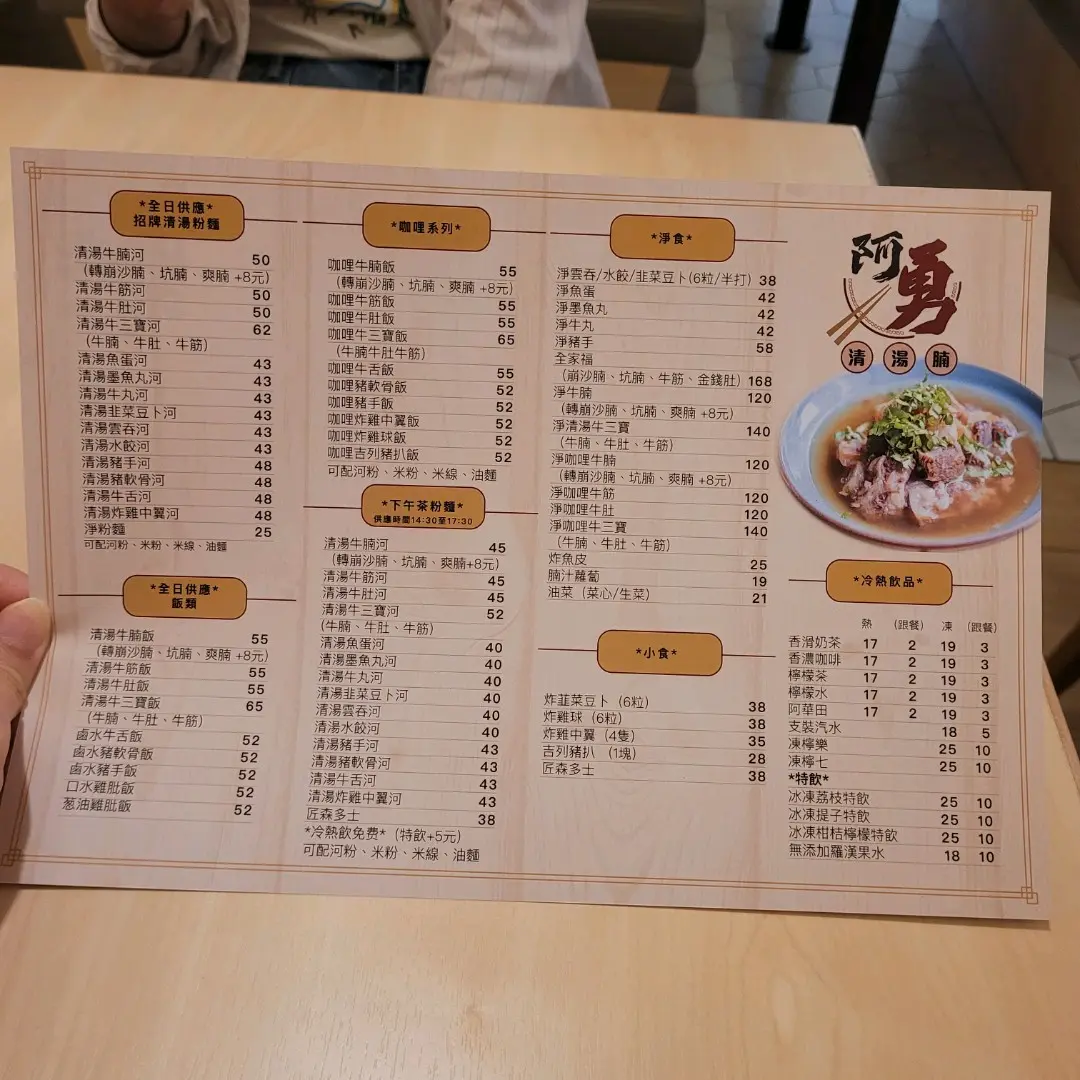 *全日供應*
招牌清湯粉麵
清湯牛腩河 50
（轉崩沙腩、坑腩、爽腩 +8元）
清湯牛筋河 50
清湯牛肚河 50
清湯牛三寶河 62
（牛腩、牛肚、牛筋）
清湯魚蛋河 43
清湯墨魚丸河 43
清湯牛丸河 43
清湯韭菜豆卜河 43
清湯雲吞河 43
清湯水餃河 43
清湯豬手河 48
清湯豬軟骨河 48
清湯牛舌河 48
清湯炸雞中翼河 48
淨粉麵 25
可配河粉、米粉、米線、油麵
*全日供應*
飯類
清湯牛腩飯 55
（轉崩沙腩、坑腩、爽腩 +8元）
清湯牛筋飯 55
清湯牛肚飯 55
清湯牛三寶飯 65
（牛腩、牛肚、牛筋）
鹵水牛舌飯 52
鹵水豬軟骨飯 52
鹵水豬手飯 52
口水雞肶飯 52
葱油雞肶飯 52
*咖喱系列*
咖哩牛腩飯 55
（轉崩沙腩、坑腩、爽腩 +8元）
咖哩牛筋飯 55
咖哩牛肚飯 55
咖哩牛三寶飯 65
（牛腩牛肚牛筋）
咖哩牛舌飯 55
咖哩豬軟骨飯 52
咖哩豬手飯 52
咖哩炸雞中翼飯 52
咖哩炸雞球飯 52
咖哩吉列豬扒飯 52
可配河粉、米粉、米線、油麵
*下午茶粉麵*
供應時間14:30至17:30
清湯牛腩河 45
（轉崩沙腩、坑腩、爽腩+8元）
清湯牛筋河 45
清湯牛肚河 45
清湯牛三寶河 52
（牛腩、牛肚、牛筋）
清湯魚蛋河 40
清湯墨魚丸河 40
清湯牛丸河 40
清湯韭菜豆卜河 40
清湯雲吞河 40
清湯水餃河 40
清湯豬手河 43
清湯豬軟骨河 43
清湯牛舌河 43
清湯炸雞中翼河 43
匠森多士 38
*冷熱飲免費*（特飲+5元）
可配河粉、米粉、米線、油麵
*淨食*
淨雲吞/水餃/韭菜豆卜(6粒/半打) 38
淨魚蛋 42
淨墨魚丸 42
淨牛丸 42
淨豬手 58
全家福
（崩沙腩、坑腩、牛筋、金錢肚） 168
淨牛腩 120
（轉崩沙腩、坑腩、爽腩 +8元）
淨清湯牛三寶 140
（牛腩、牛肚、牛筋）
淨咖哩牛腩 120
（轉崩沙腩、坑腩、爽腩 +8元）
淨咖哩牛筋 120
淨咖哩牛肚 120
淨咖哩牛三寶 140
（牛腩、牛肚、牛筋）
炸魚皮 25
腩汁蘿蔔 19
油菜（菜心/生菜） 21
*小食*
炸韮菜豆卜（6粒） 38
炸雞球（6粒） 38
炸雞中翼（4隻） 35
吉列豬扒 （1塊） 28
匠森多士 38
阿勇
清湯腩
*冷熱飲品*
熱 （跟餐） 凍 （跟餐）
香滑奶茶 17 2 19 3
香濃咖啡 17 2 19 3
檸檬茶 17 2 19 3
檸檬水 17 2 19 3
阿華田 17 2 19 3
支裝汽水 18 5
凍檸樂 25 10
凍檸七 25 10
*特飲*
冰凍荔枝特飲 25 10
冰凍提子特飲 25 10
冰凍柑桔檸檬特飲 25 10
無添加羅漢果水 18 10